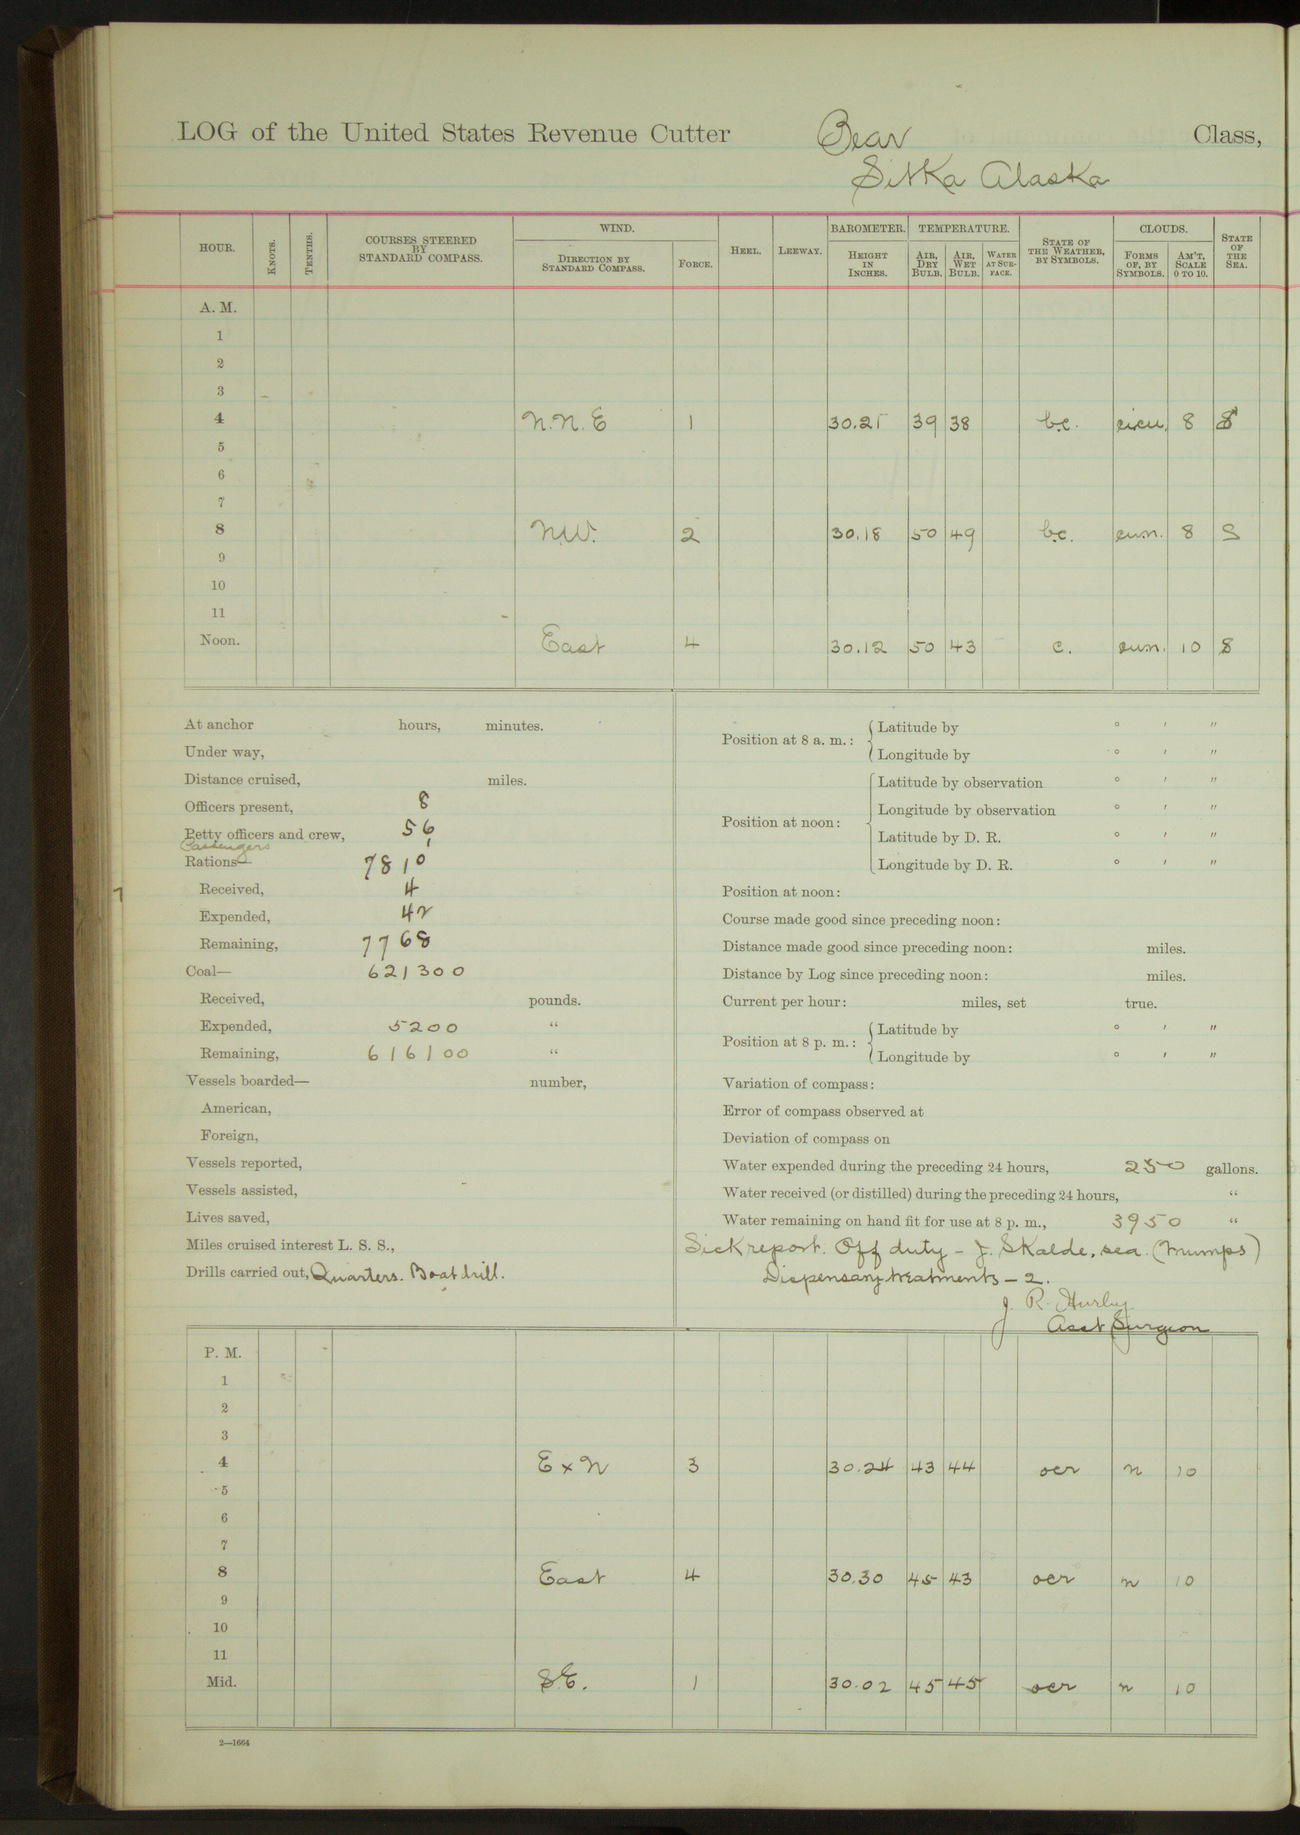 LOG of the United States Revenue Cutter Bear Class,
Sitka Alaska
HOUR. KNOTS. TENTHS. COURSES STEERED BY STANDARD COMPASS. WIND. DIRECTION BY STANDARD COMPASS. FORCE. HEEL. LEEWAY. BAROMETER. HEIGHT IN INCHES. TEMPERATURE. AIR, DRY BULB. AIR, WET BULB. WATER AT SURFACE. STATE OF THE WEATHER, BY SYMBOLS. CLOUDS. FORMS OF, BY SYMBOLS. AM'T, SCALE 0 TO 10. STATE OF THE SEA.
A. M.
1
2
3
4 N.N.E 1 30.21 39 38 b.c. 8 S
5
6
7
8 N.W. 2 30.18 50 49 b.c. cu.n. 8 S
9
10
11
Noon. East 4 30.12 50 43 c. cu.n. 10 S
At anchor hours, minutes.
Under way,
Distance cruised, miles.
Officers present, 8
Petty officers and crew, 56
Passengers 1
Rations— 7810
Received, 4
Expended, 42
Remaining, 7768
Coal— 621300
Received, pounds.
Expended, 5200 “
Remaining, 616100 “
Vessels boarded— number,
American,
Foreign,
Vessels reported,
Vessels assisted,
Lives saved,
Miles cruised interest L. S. S.,
Drills carried out, Quarters. Boat drill.
Position at 8 a. m.: Latitude by ° ′ ″
Longitude by ° ′ ″
Position at noon: Latitude by observation ° ′ ″
Longitude by observation ° ′ ″
Latitude by D. R. ° ′ ″
Longitude by D. R. ° ′ ″
Position at noon:
Course made good since preceding noon:
Distance made good since preceding noon: miles.
Distance by Log since preceding noon: miles.
Current per hour: miles, set true.
Position at 8 p. m.: Latitude by ° ′ ″
Longitude by ° ′ ″
Variation of compass:
Error of compass observed at
Deviation of compass on
Water expended during the preceding 24 hours, 250 gallons.
Water received (or distilled) during the preceding 24 hours, “
Water remaining on hand fit for use at 8 p. m., 3950 “
Sick report. Off duty – J. Skalde, sea. (Mumps)
Dispensary treatments – 2.
J. R. Hurley
Asst Surgeon
P. M.
1
2
3
4 E x N 3 30.24 43 44 ocr n 10
5
6
7
8 East 4 30.30 45 43 ocr n 10
9
10
11
Mid. SE. 1 30.02 45 45 ocr n 10
2—1664